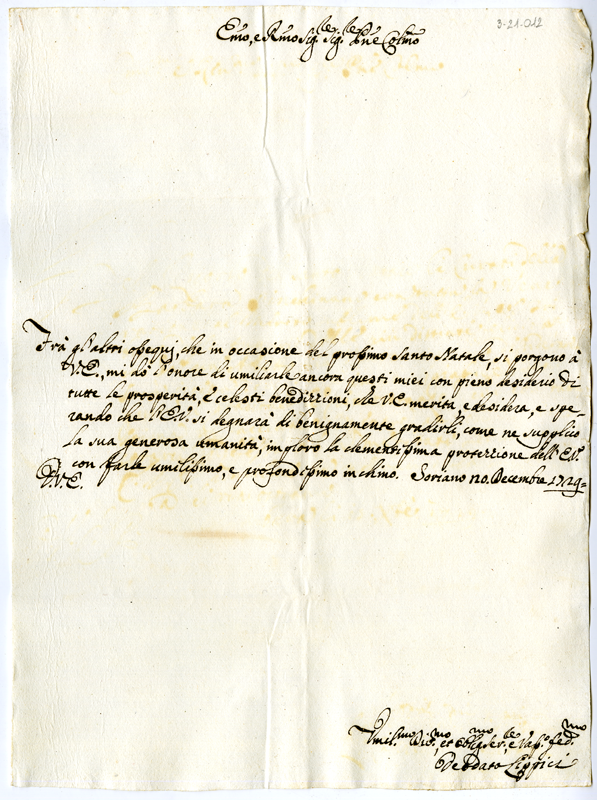 3-21-012
Emo, e Rmo Sig.re Sig.re Pne Colmo
Frà gl'altri ossequj, che in occasione del prossimo Santo Natale, si porgono à
V.E., mi dò l'onore di umiliarle ancora questi miei con pieno desiderio di
tutte le prosperità, e celesti benedizzioni, che V.E. merita, e desidera, e spe-
rando che l'E.V. si degnarà di benignamente gradirli, come ne supplico
la sua generosa umanità, imploro la clementissima protezzione dell'E.V.
con farle umilissimo, e profondissimo inchino. Soriano 20. Decembre 1729=
D.V.E.
Umil.mo Div.mo, et Oblig.mo Ser.re, e Vass.o fed.mo
Deodato